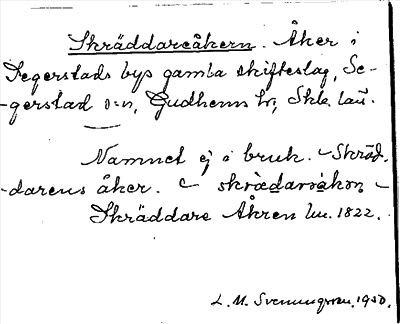 Skräddareåkern. Åker i
Segerstads bys gamla skifteslag, Se-
-gerstad s:n, Gudhems hd, Skb. län.
Namnet ej i bruk. – Skräd-
-darens åker. –
Skräddare Åkren lm. 1822.
L. M. Svenungsson. 1930.